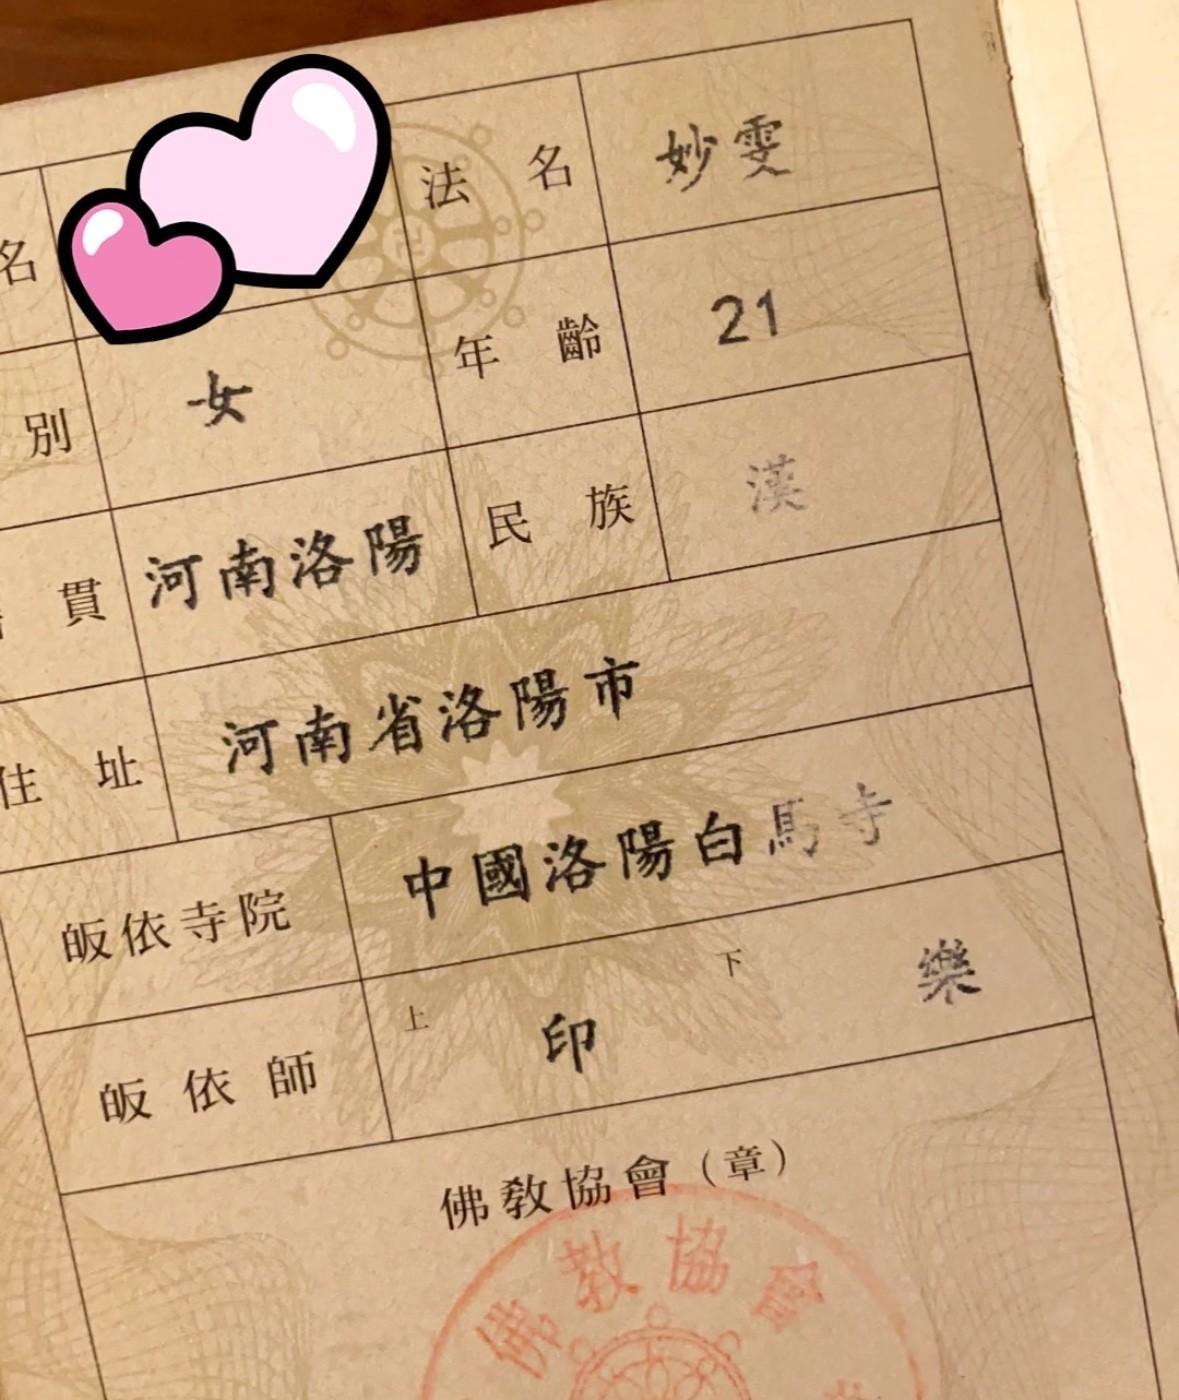 名 法 名 妙雯
別 女 年 齡 21
貫 河南洛陽 民 族 漢
住 址 河南省洛陽市
皈依寺院 中國洛陽白馬寺
皈 依 師 上 印 下 樂
佛教協會（章）
佛教協會